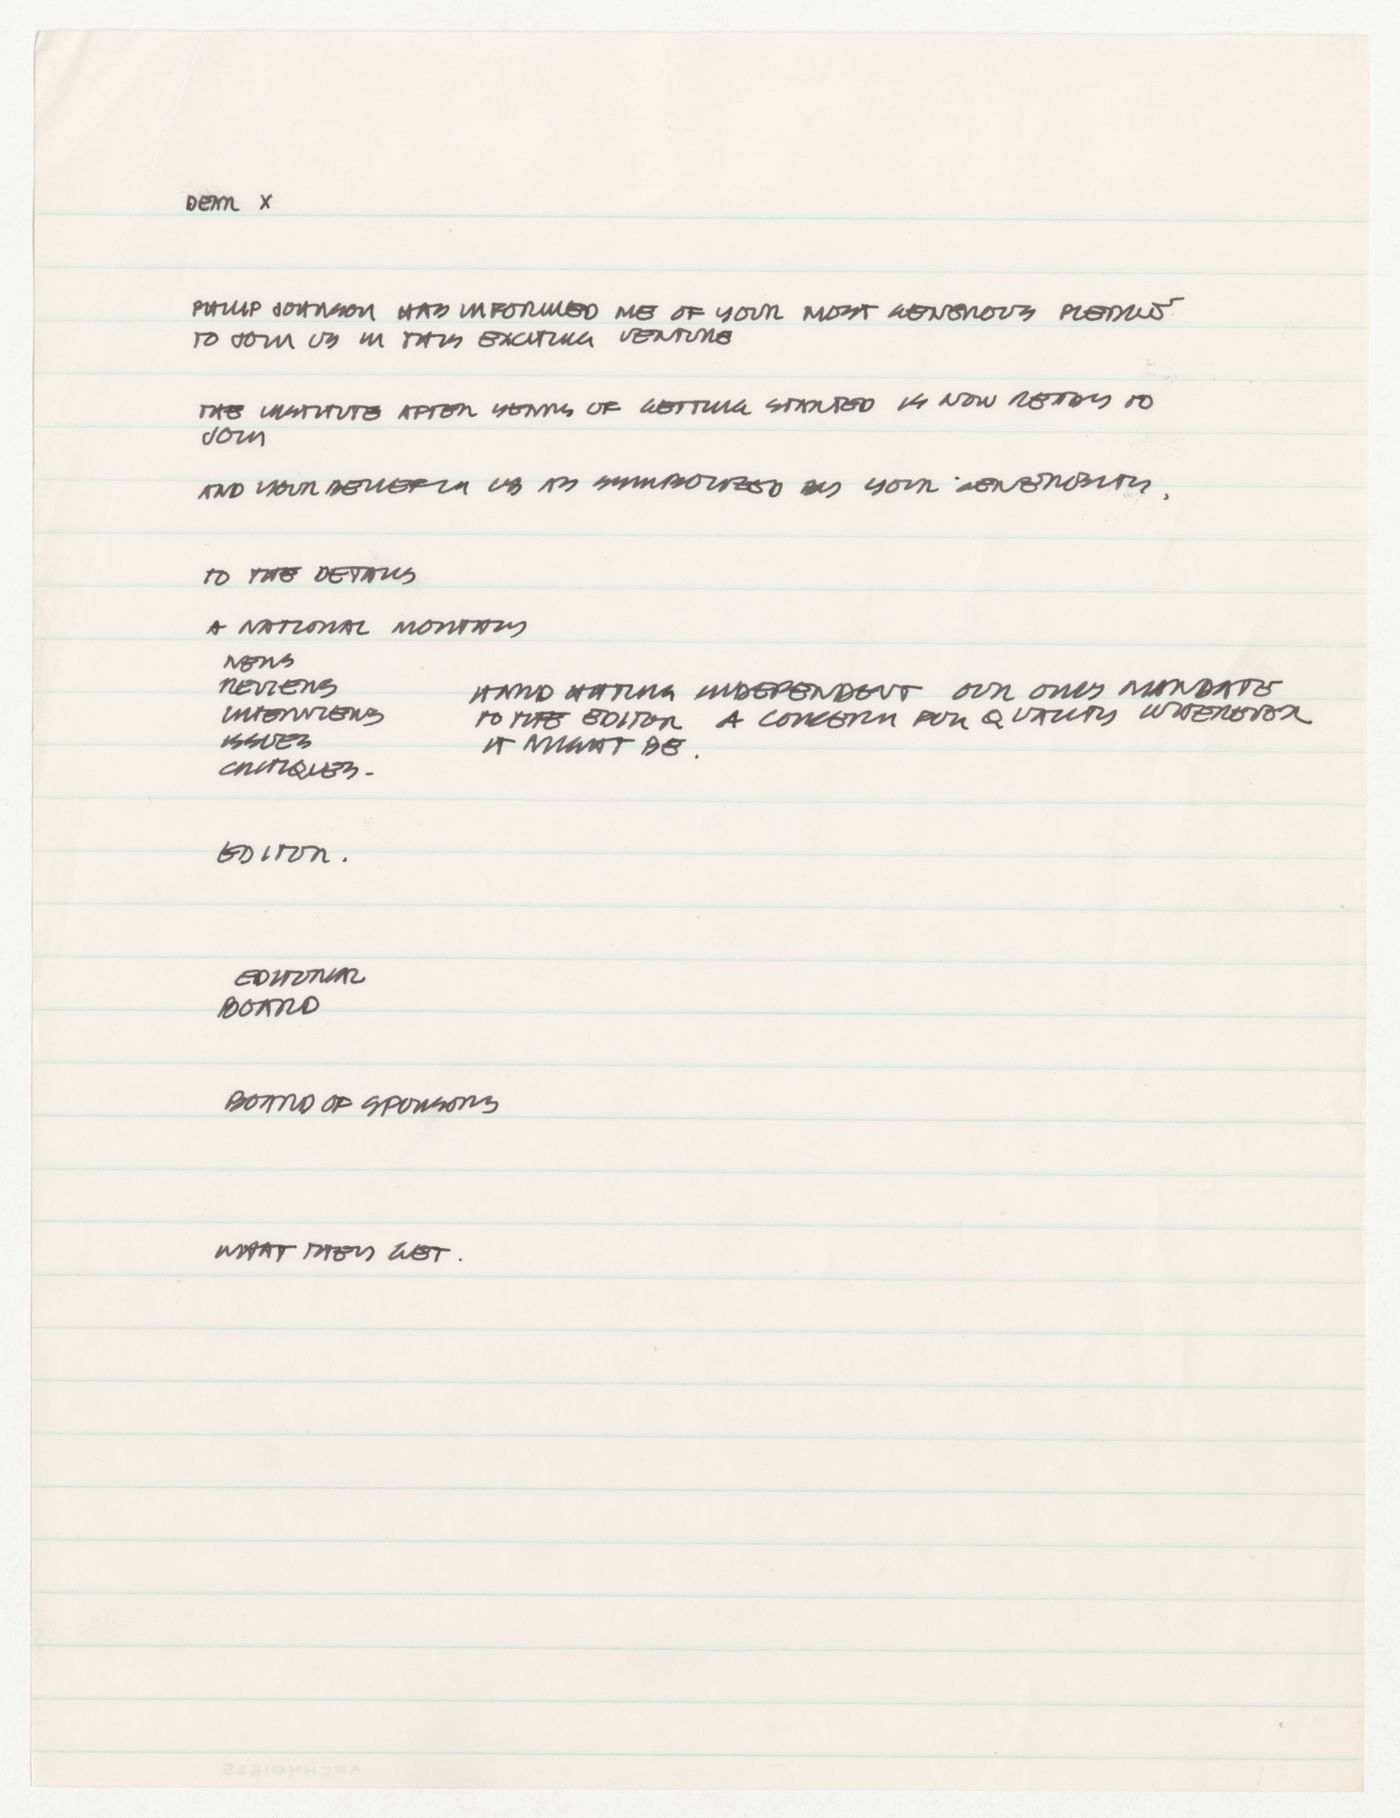 DEAR X
PHILIP JOHNSON HAS INFORMED ME OF YOUR MOST GENEROUS PLEDGE
TO JOIN US IN THIS EXCITING VENTURE
THE INSTITUTE AFTER YEARS OF GETTING STARTED IS NOW READY TO
JOIN
AND YOUR BELIEF IN US AS SYMBOLIZED BY YOUR GENEROSITY.
TO THE DETAILS
A NATIONAL MONTHLY
NEWS
REVIEWS
INTERVIEWS
ISSUES
CRITIQUES.
HARD HITTING INDEPENDENT OUR ONLY MANDATE
TO THE EDITOR A CONCERN FOR QUALITY WHEREVER
IT MIGHT BE.
EDITOR.
EDITORIAL
BOARD
BOARD OF SPONSORS
WHAT THEY GET.
ARCH401625